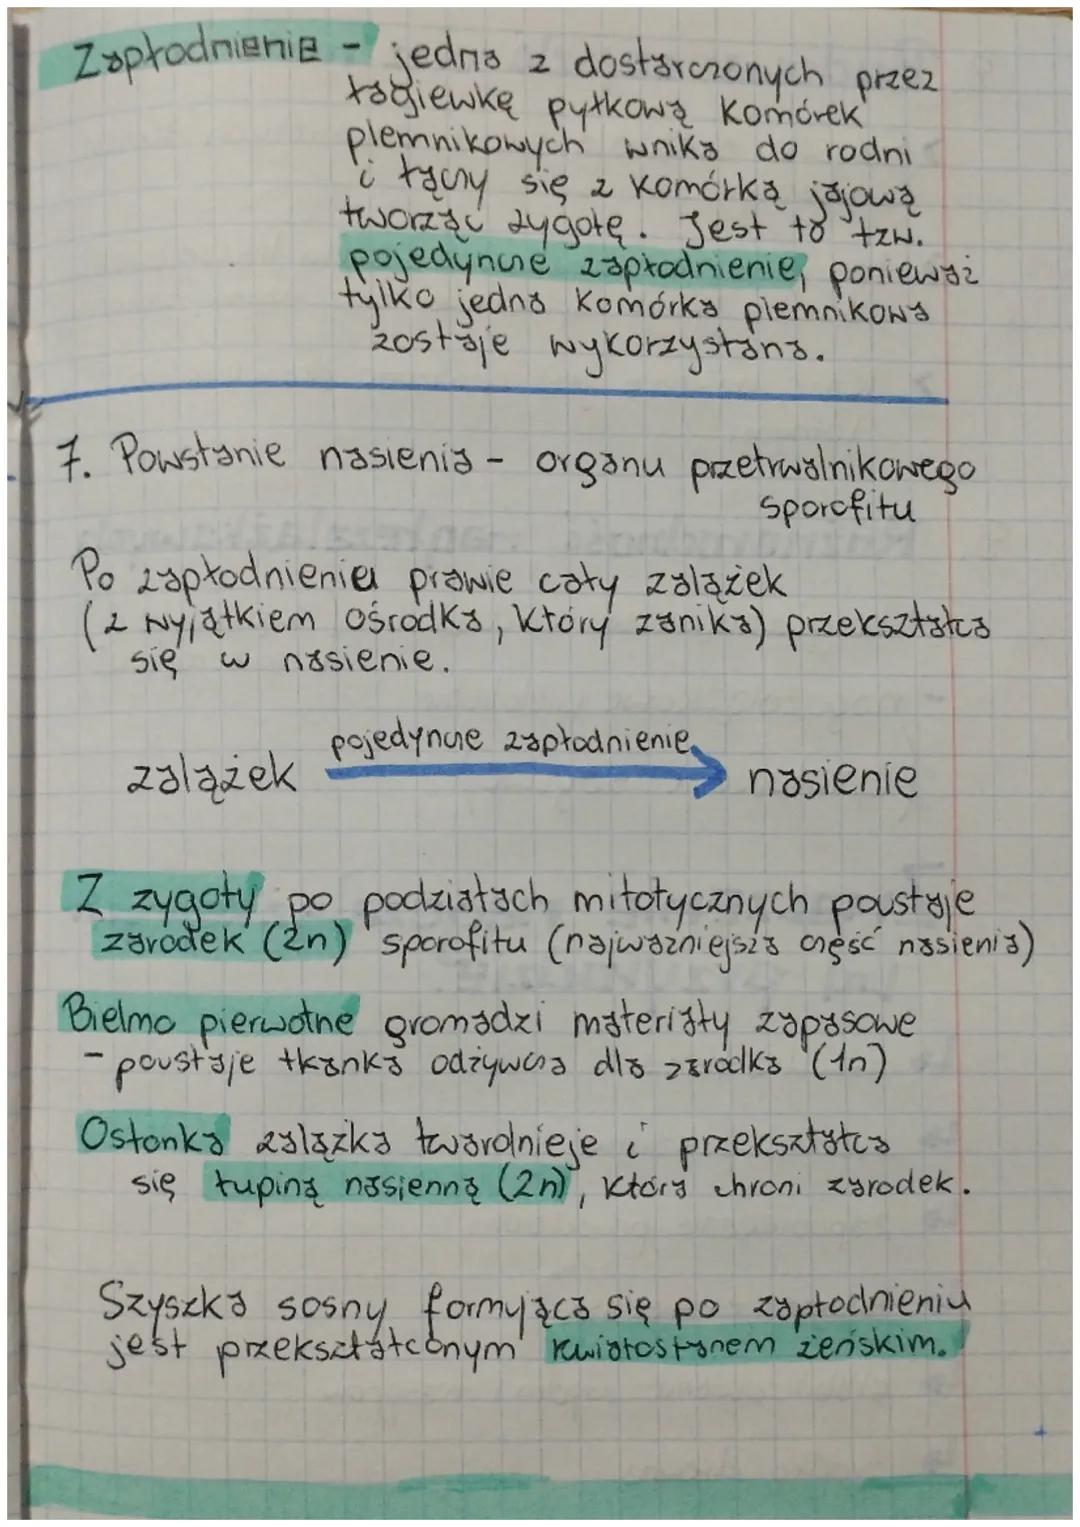 Zapłodnienie - jedna z dostarczonych przez
łagiewkę pyłkową komórek
plemnikowych wnika do rodni
i łączy się z komórką jajową
tworząc zygotę. Jest to tzw.
pojedyncze zapłodnienie, ponieważ
tylko jedna komórka plemnikowa
zostaje wykorzystana.
7. Powstanie nasienia - organu przetrwalnikowego
sporofitu
Po zapłodnieniu prawie cały zalążek
(z wyjątkiem ośrodka, który zanika) przekształca
się w nasienie.
pojedyncze zapłodnienie
zalążek → nasienie
Z zygoty po podziałach mitotycznych powstaje
zarodek (2n) sporofitu (najważniejsza część nasienia)
Bielmo pierwotne gromadzi materiały zapasowe
- powstaje tkanka odżywcza dla zarodka (1n)
Osłonka zalążka twardnieje i przekształca
się łupiną nasienną (2n), która chroni zarodek.
Szyszka sosny formująca się po zapłodnieniu
jest przekształconym kwiatostanem żeńskim.